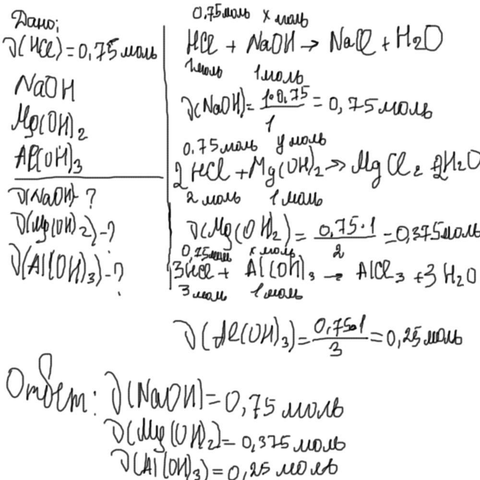 Дано:
ν(HCl) = 0,75 моль
NaOH
Mg(OH)₂
Al(OH)₃
ν(NaOH) - ?
ν(Mg(OH)₂) - ?
ν(Al(OH)₃) - ?
0,75 моль x моль
HCl + NaOH → NaCl + H₂O
1 моль 1 моль
ν(NaOH) = 1·0,75/1 = 0,75 моль
0,75 моль y моль
2HCl + Mg(OH)₂ → MgCl₂ + 2H₂O
2 моль 1 моль
ν(Mg(OH)₂) = 0,75·1/2 = 0,375 моль
0,75 моль x моль
3HCl + Al(OH)₃ → AlCl₃ + 3H₂O
3 моль 1 моль
ν(Al(OH)₃) = 0,75·1/3 = 0,25 моль
Ответ: ν(NaOH) = 0,75 моль
ν(Mg(OH)₂) = 0,375 моль
ν(Al(OH)₃) = 0,25 моль